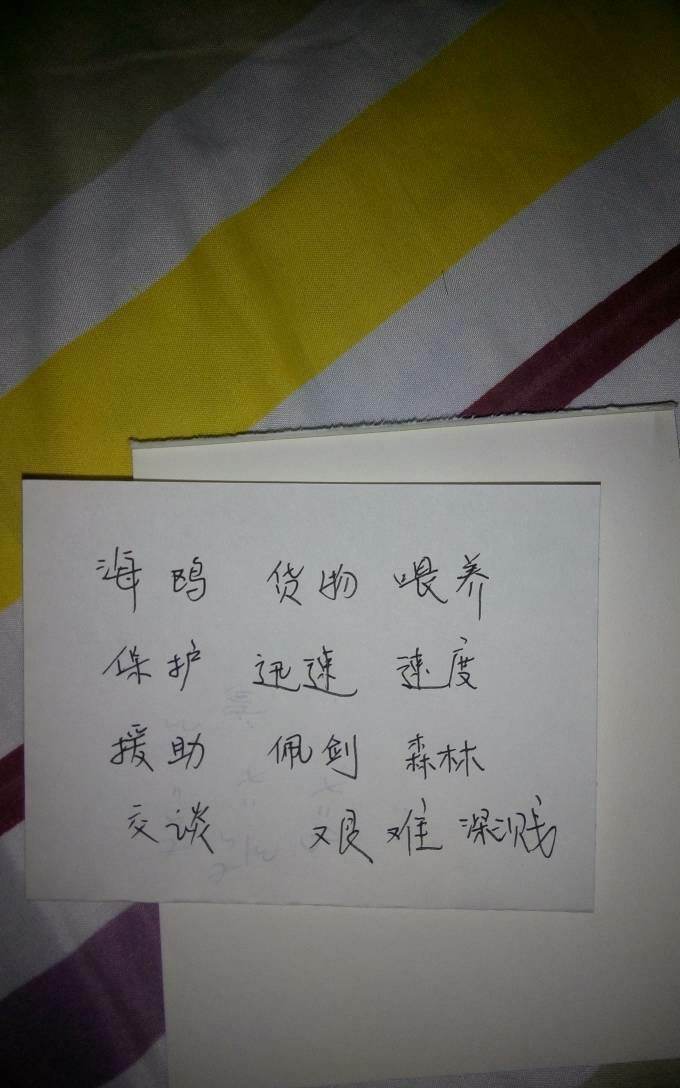 海鸥 货物 喂养
保护 迅速 速度
援助 佩剑 森林
交谈 艰难 深溅